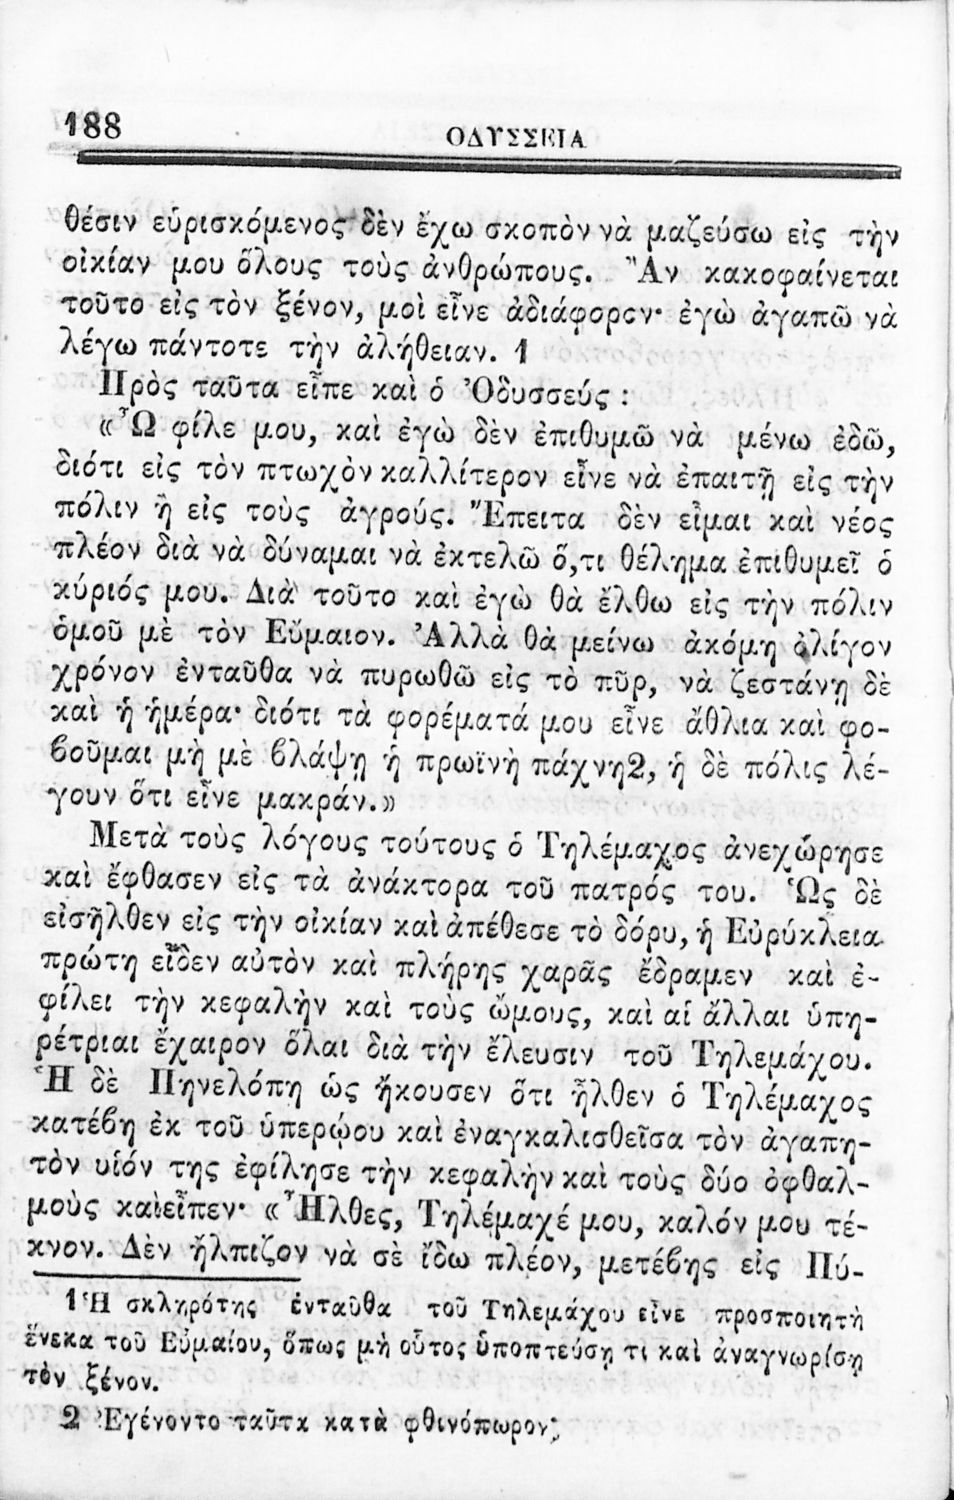 188
ΟΔΥΣΣΕΙΑ
θέσιν εὑρισκόμενος δὲν ἔχω σκοπὸν νὰ μαζεύσω εἰς τὴν
οἰκίαν μου ὅλους τοὺς ἀνθρώπους. Ἂν κακοφαίνεται
τοῦτο εἰς τὸν ξένον, μοὶ εἶνε ἀδιάφορον· ἐγὼ ἀγαπῶ νὰ
λέγω πάντοτε τὴν ἀλήθειαν. 1
Πρὸς ταῦτα εἶπε καὶ ὁ Ὀδυσσεύς :
«Ὦ φίλε μου, καὶ ἐγὼ δὲν ἐπιθυμῶ νὰ μένω ἐδῶ,
διότι εἰς τὸν πτωχὸν καλλίτερον εἶνε νὰ ἐπαιτῇ εἰς τὴν
πόλιν ἢ εἰς τοὺς ἀγρούς. Ἔπειτα δὲν εἶμαι καὶ νέος
πλέον διὰ νὰ δύναμαι νὰ ἐκτελῶ ὅ,τι θέλημα ἐπιθυμεῖ ὁ
κύριός μου. Διὰ τοῦτο καὶ ἐγὼ θὰ ἔλθω εἰς τὴν πόλιν
ὁμοῦ μὲ τὸν Εὔμαιον. Ἀλλὰ θὰ μείνω ἀκόμη ὀλίγον
χρόνον ἐνταῦθα νὰ πυρωθῶ εἰς τὸ πῦρ, νὰ ζεστάνῃ δὲ
καὶ ἡ ἡμέρα· διότι τὰ φορέματά μου εἶνε ἄθλια καὶ φο-
βοῦμαι μὴ μὲ βλάψῃ ἡ πρωϊνὴ πάχνη2, ἡ δὲ πόλις λέ-
γουν ὅτι εἶνε μακράν.»
Μετὰ τοὺς λόγους τούτους ὁ Τηλέμαχος ἀνεχώρησε
καὶ ἔφθασεν εἰς τὰ ἀνάκτορα τοῦ πατρός του. Ὡς δὲ
εἰσῆλθεν εἰς τὴν οἰκίαν καὶ ἀπέθεσε τὸ δόρυ, ἡ Εὐρύκλεια
πρώτη εἶδεν αὐτὸν καὶ πλήρης χαρᾶς ἔδραμεν καὶ ἐ-
φίλει τὴν κεφαλὴν καὶ τοὺς ὤμους, καὶ αἱ ἄλλαι ὑπη-
ρέτριαι ἔχαιρον ὅλαι διὰ τὴν ἔλευσιν τοῦ Τηλεμάχου.
Ἡ δὲ Πηνελόπη ὡς ἤκουσεν ὅτι ἦλθεν ὁ Τηλέμαχος
κατέβη ἐκ τοῦ ὑπερῴου καὶ ἐναγκαλισθεῖσα τὸν ἀγαπη-
τὸν υἱόν της ἐφίλησε τὴν κεφαλὴν καὶ τοὺς δύο ὀφθαλ-
μοὺς καὶ εἶπεν· «Ἦλθες, Τηλέμαχέ μου, καλόν μου τέ-
κνον. Δὲν ἤλπιζον νὰ σὲ ἴδω πλέον, μετέβης εἰς Πύ-
1 Ἡ σκληρότης ἐνταῦθα τοῦ Τηλεμάχου εἶνε προσποιητὴ
ἕνεκα τοῦ Εὐμαίου, ὅπως μὴ οὗτος ὑποπτεύσῃ τι καὶ ἀναγνωρίσῃ
τὸν ξένον.
2 Ἐγένοντο ταῦτα κατὰ φθινόπωρον;